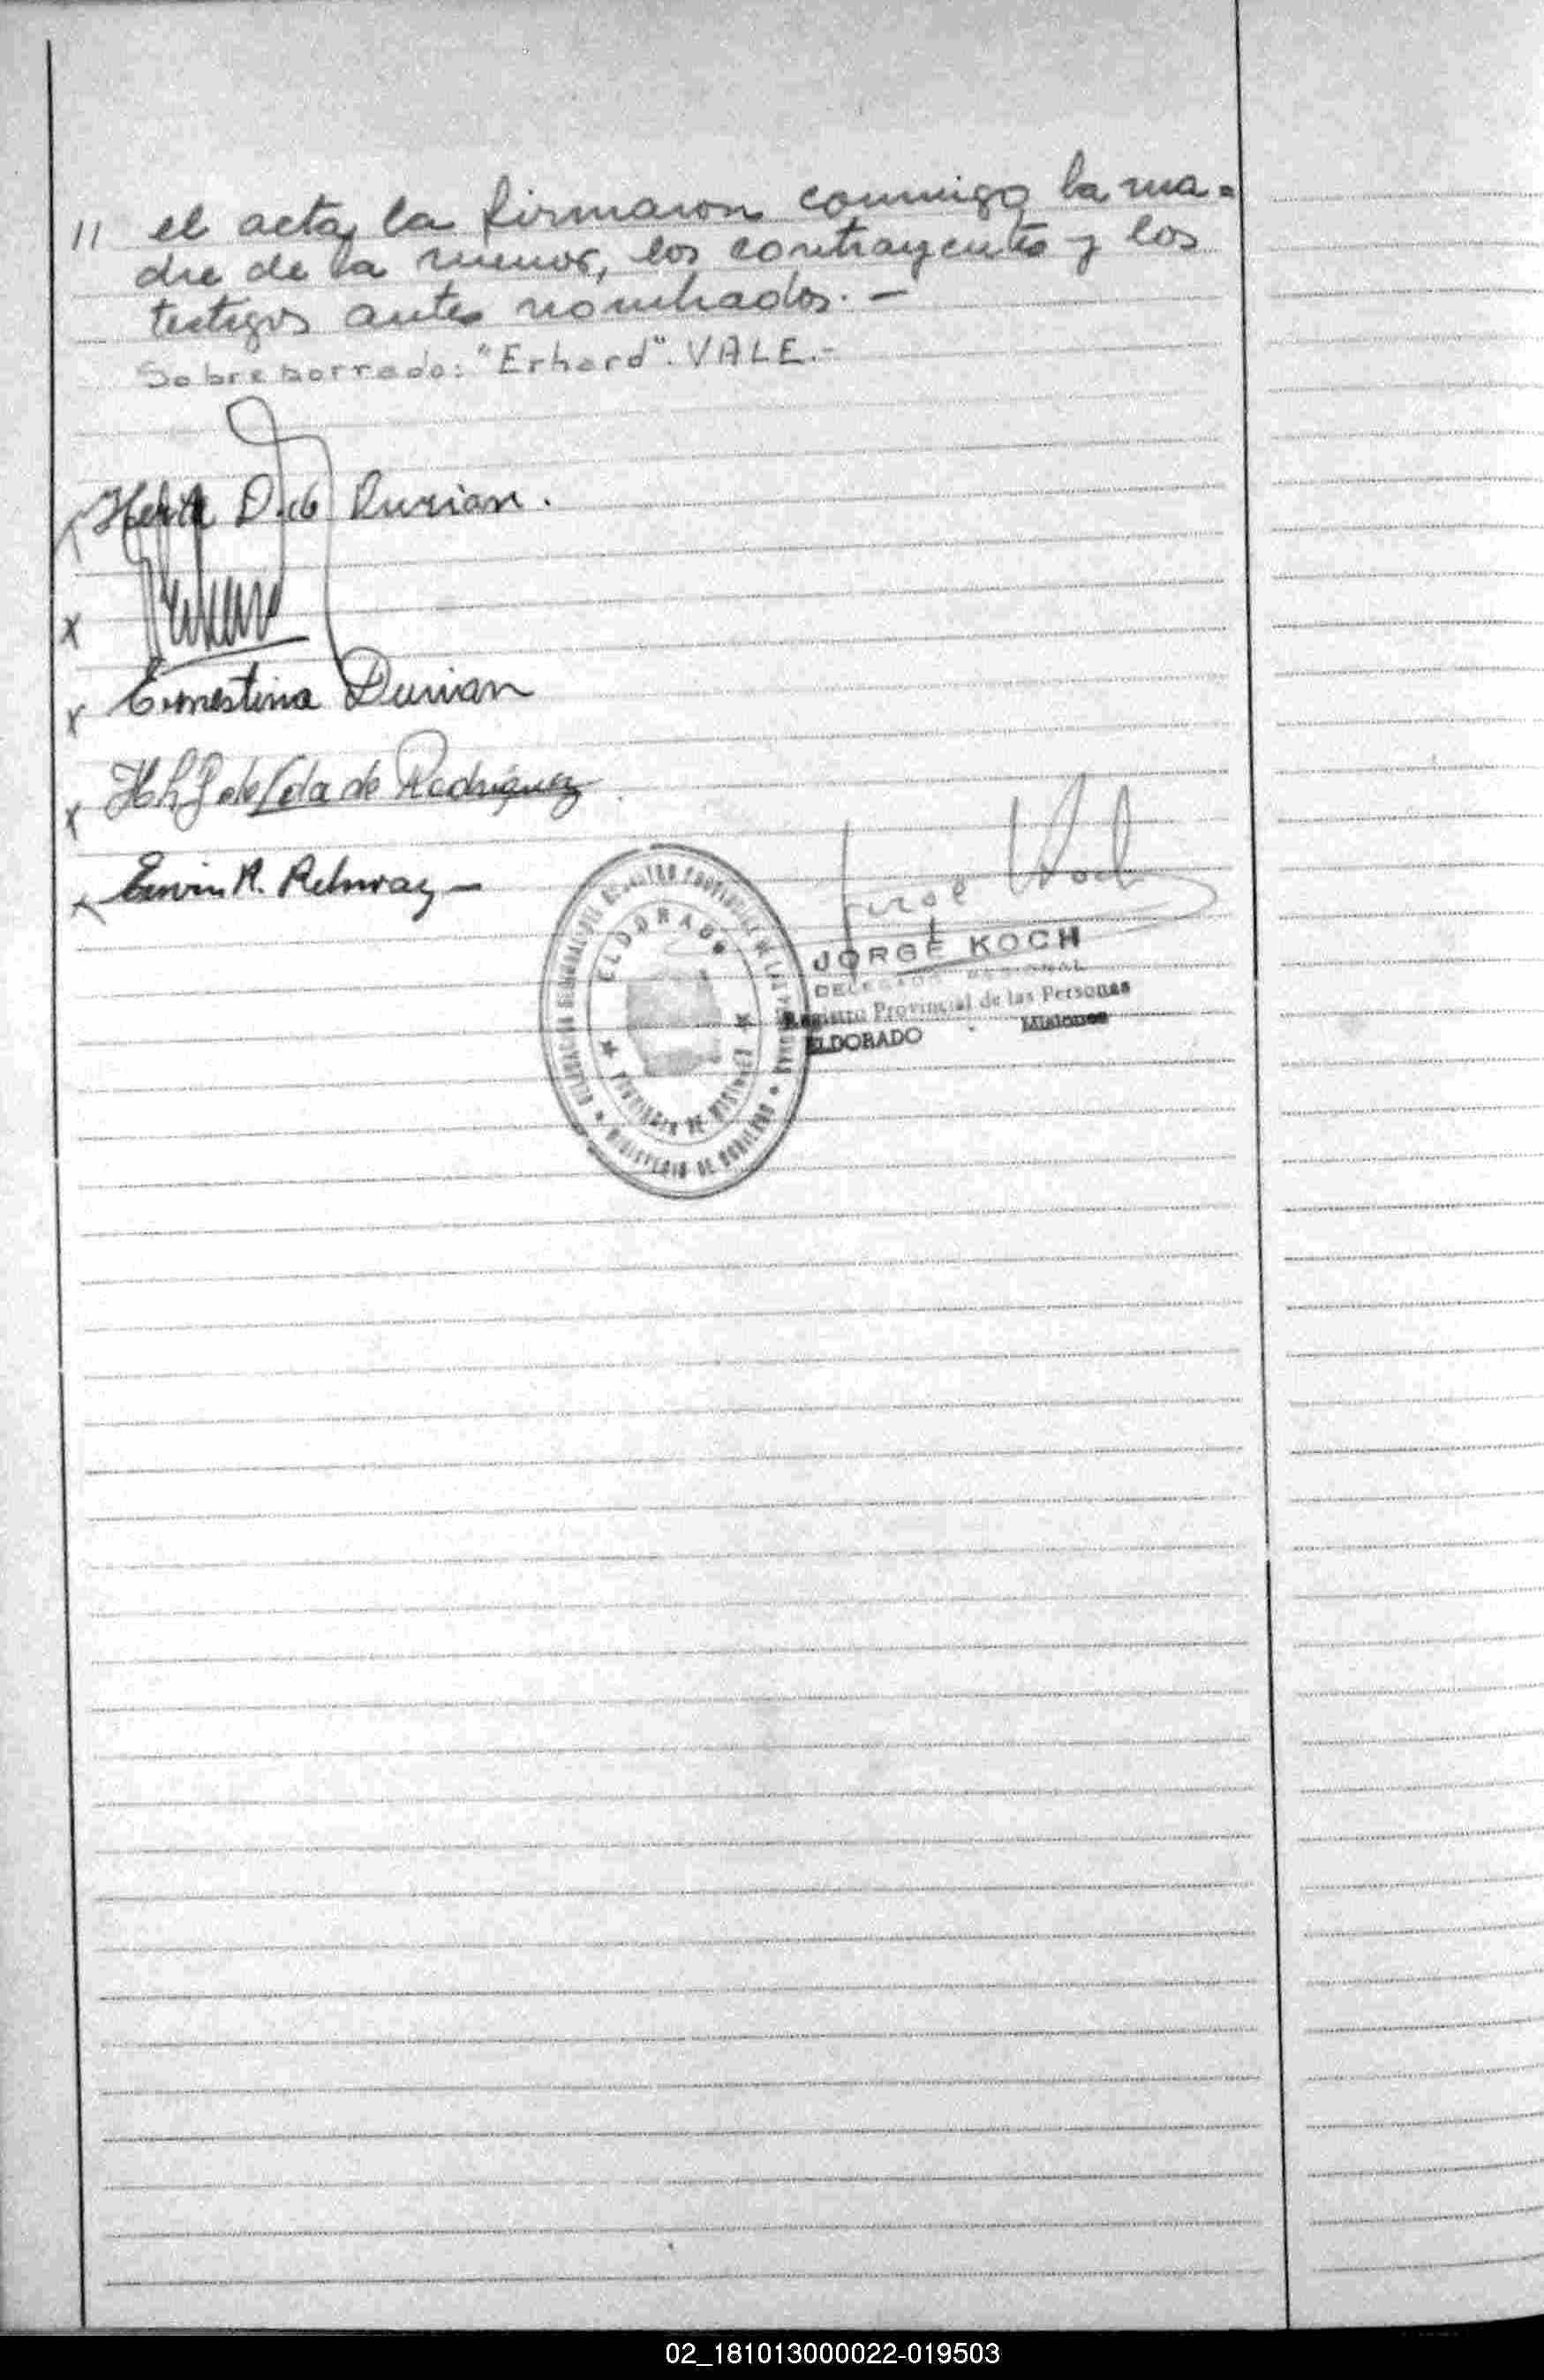 // el acta, la firmaron conmigo la ma-
dre de la menor, los contrayentes y los
testigos antes nombrados.-
Sobreborrado: "Erhard". VALE.-
Herta D. de Durian.
x
x Ernestina Durian
x de Vda de Rodriguez
Erwin R.
Jorge Koch
JORGE KOCH
DELEGADO REGIONAL
Registro Provincial de las Personas
ELDORADO - Misiones
ELDORADO
PROVINCIA DE MISIONES
REGISTRO PROVINCIAL DE LAS PERSONAS
MINISTERIO DE GOBIERNO
02_181013000022-019503